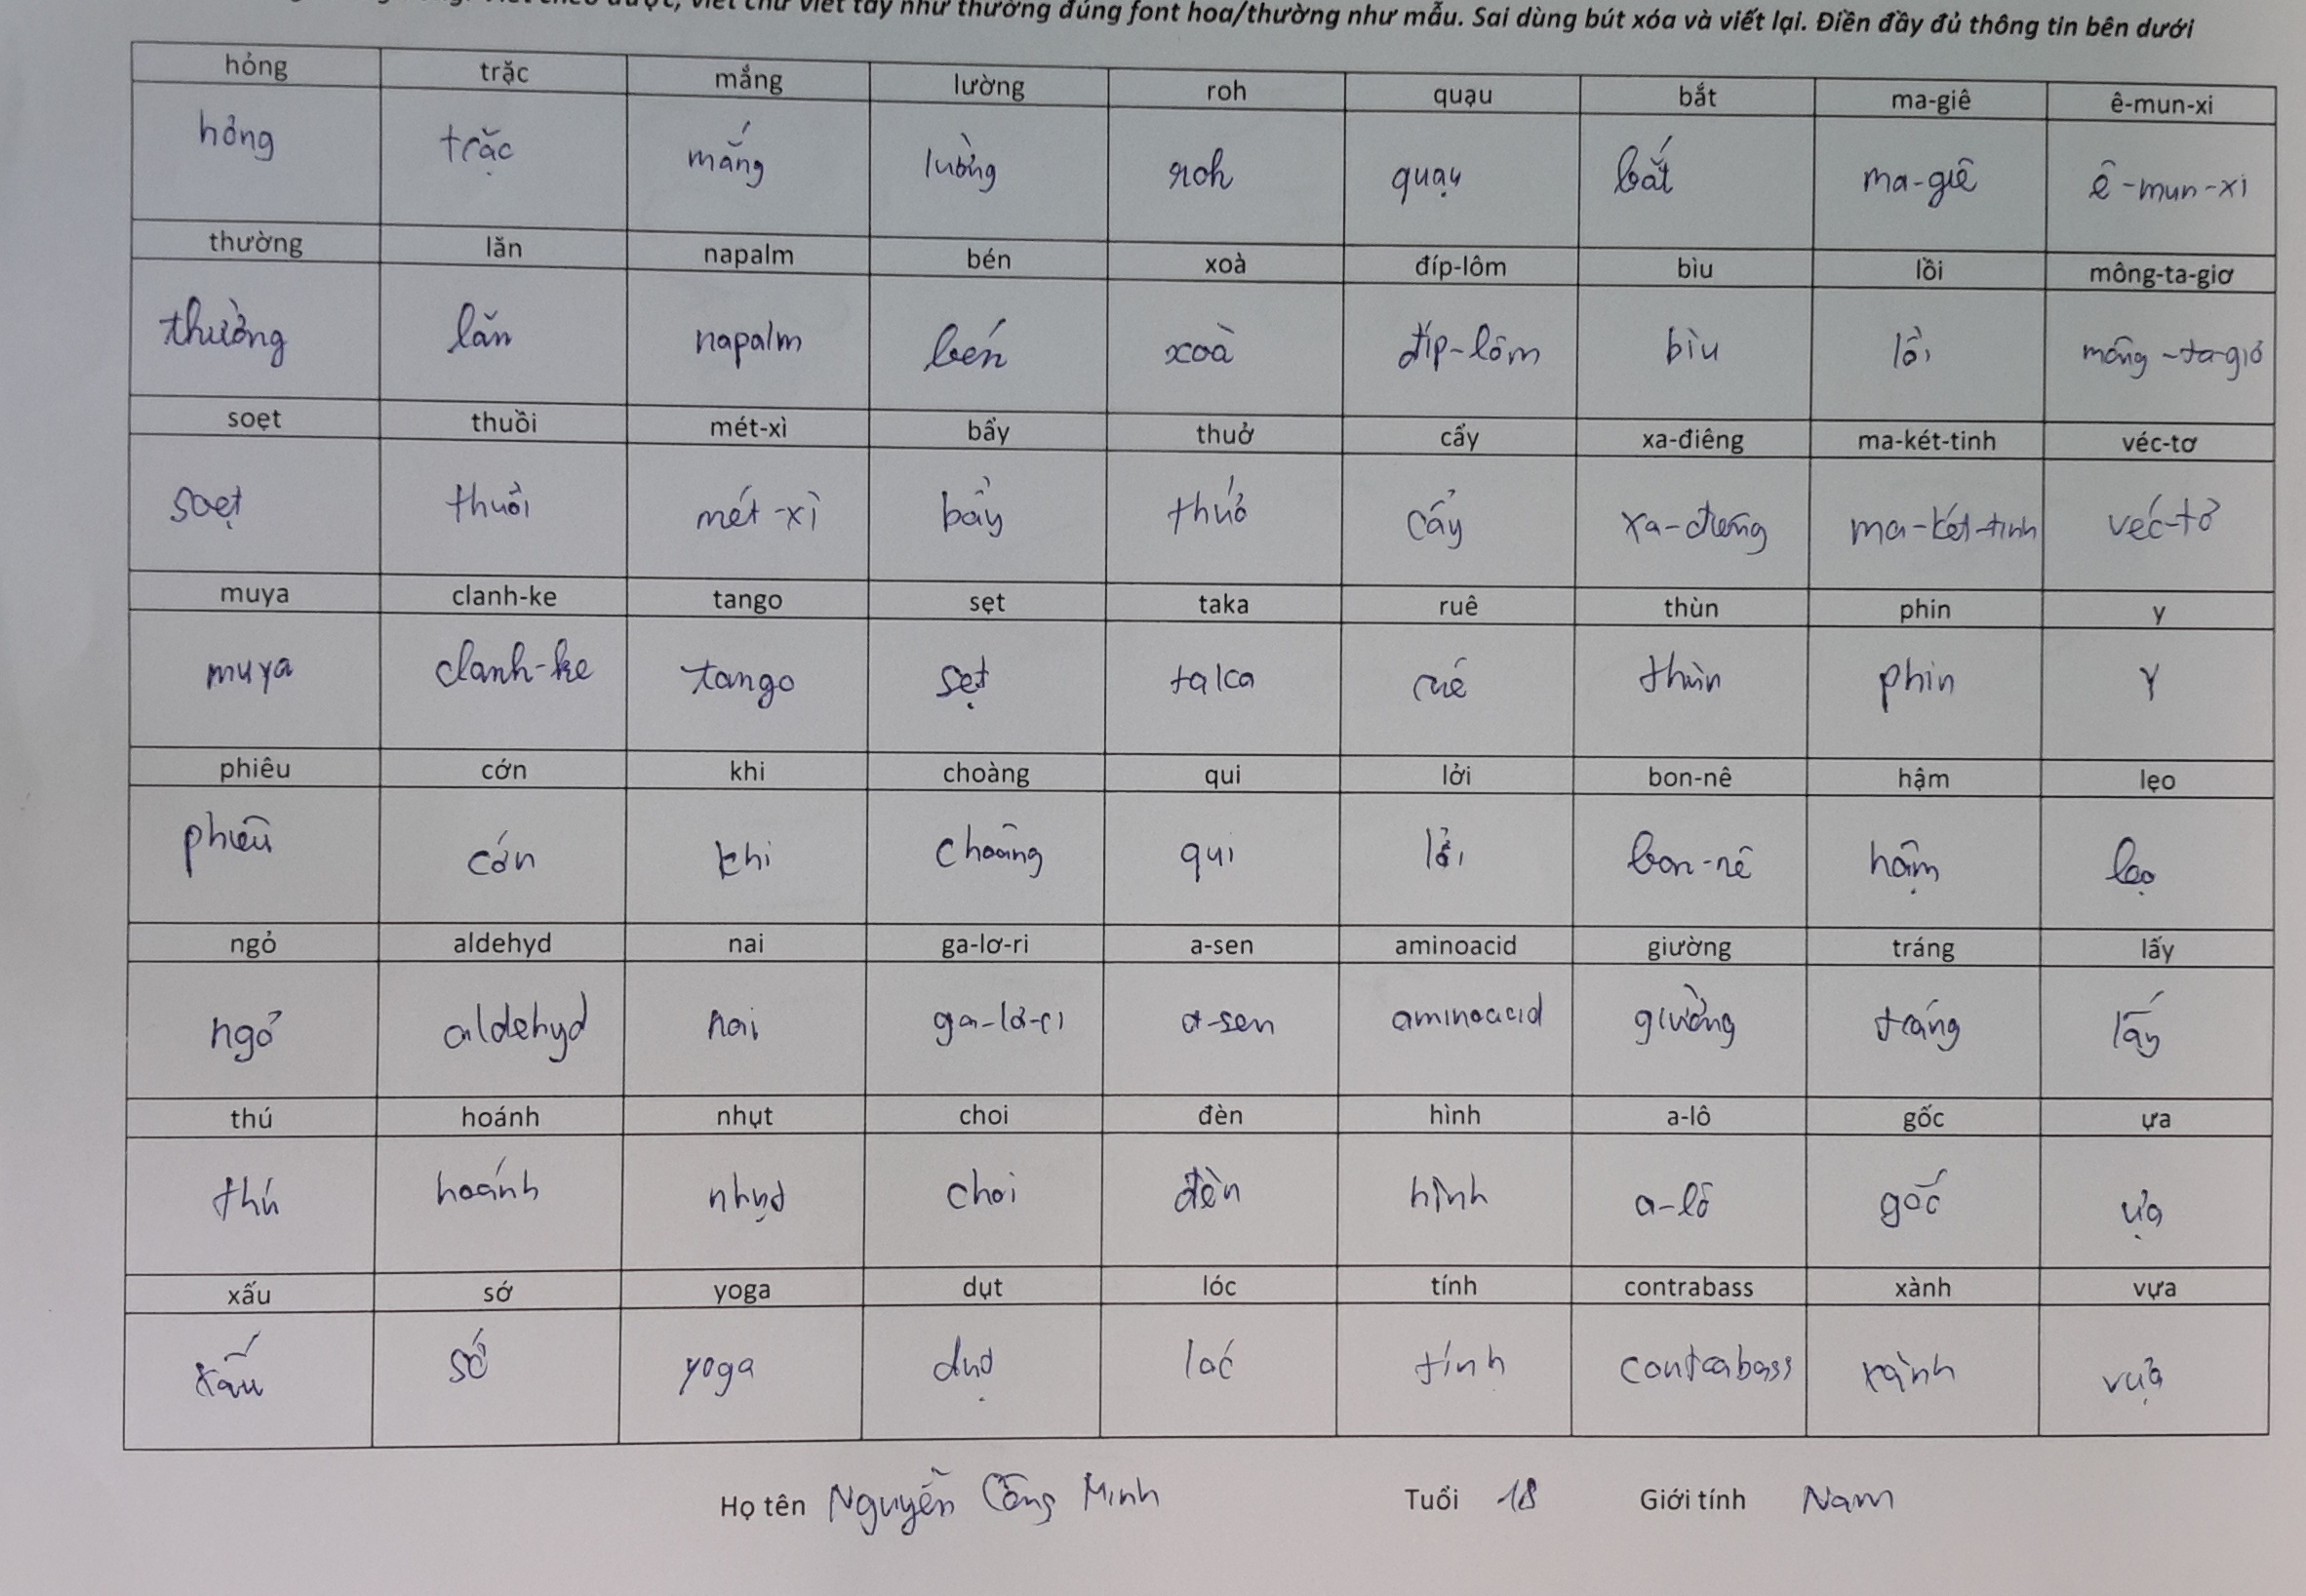 viết chữ viết tay như thường đúng font hoa/thường như mẫu. Sai dùng bút xóa và viết lại. Điền đầy đủ thông tin bên dưới
hỏng trặc mắng lường roh quạu bắt ma-giê ê-mun-xi
hỏng trặc mắng lường roh quạu bắt ma-giê ê-mun-xi
thường lăn napalm bén xoà đíp-lôm bìu lồi mông-ta-giơ
thường lăn napalm bén xoà đíp-lôm bìu lồi mông-ta-giơ
soẹt thuồi mét-xì bẩy thuở cẩy xa-điêng ma-két-tinh véc-tơ
soẹt thuồi mét-xì bẩy thuở cẩy xa-điêng ma-két-tinh véc-tơ
muya clanh-ke tango sẹt taka ruê thùn phin y
muya clanh-ke tango sẹt taka ruê thùn phin y
phiêu cớn khi choàng qui lởi bon-nê hậm lẹo
phiêu cớn khi choàng qui lởi bon-nê hậm lẹo
ngỏ aldehyd nai ga-lơ-ri a-sen aminoacid giường tráng lấy
ngỏ aldehyd nai ga-lơ-ri a-sen aminoacid giường tráng lấy
thú hoánh nhụt choi đèn hình a-lô gốc ựa
thú hoánh nhụt choi đèn hình a-lô gốc ựa
xấu sớ yoga dụt lóc tính contrabass xành vựa
xấu sớ yoga dụt lóc tính contrabass xành vựa
Họ tên Nguyễn Công Minh Tuổi 18 Giới tính Nam